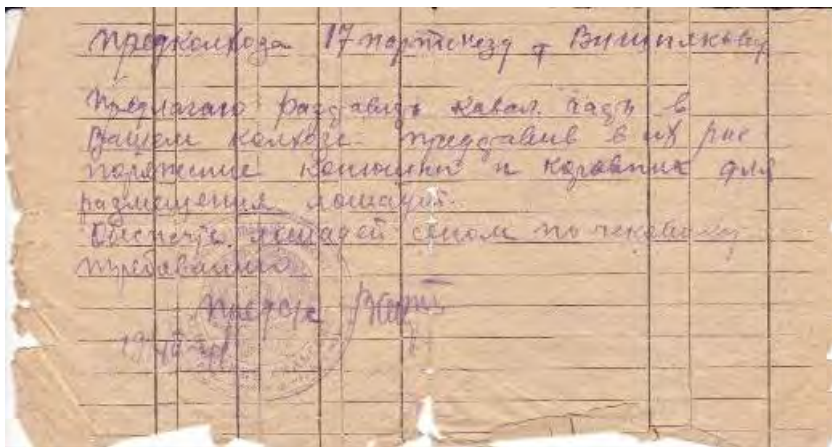 Предколхоза 17 партсъезд т Вишнякову
Предлагаю кавал. часть в
Вашем колхозе предоставив в их рас
поряжение конюшни и коровник для
размещения лошадей.
лошадей сеном по чековому
требованию.